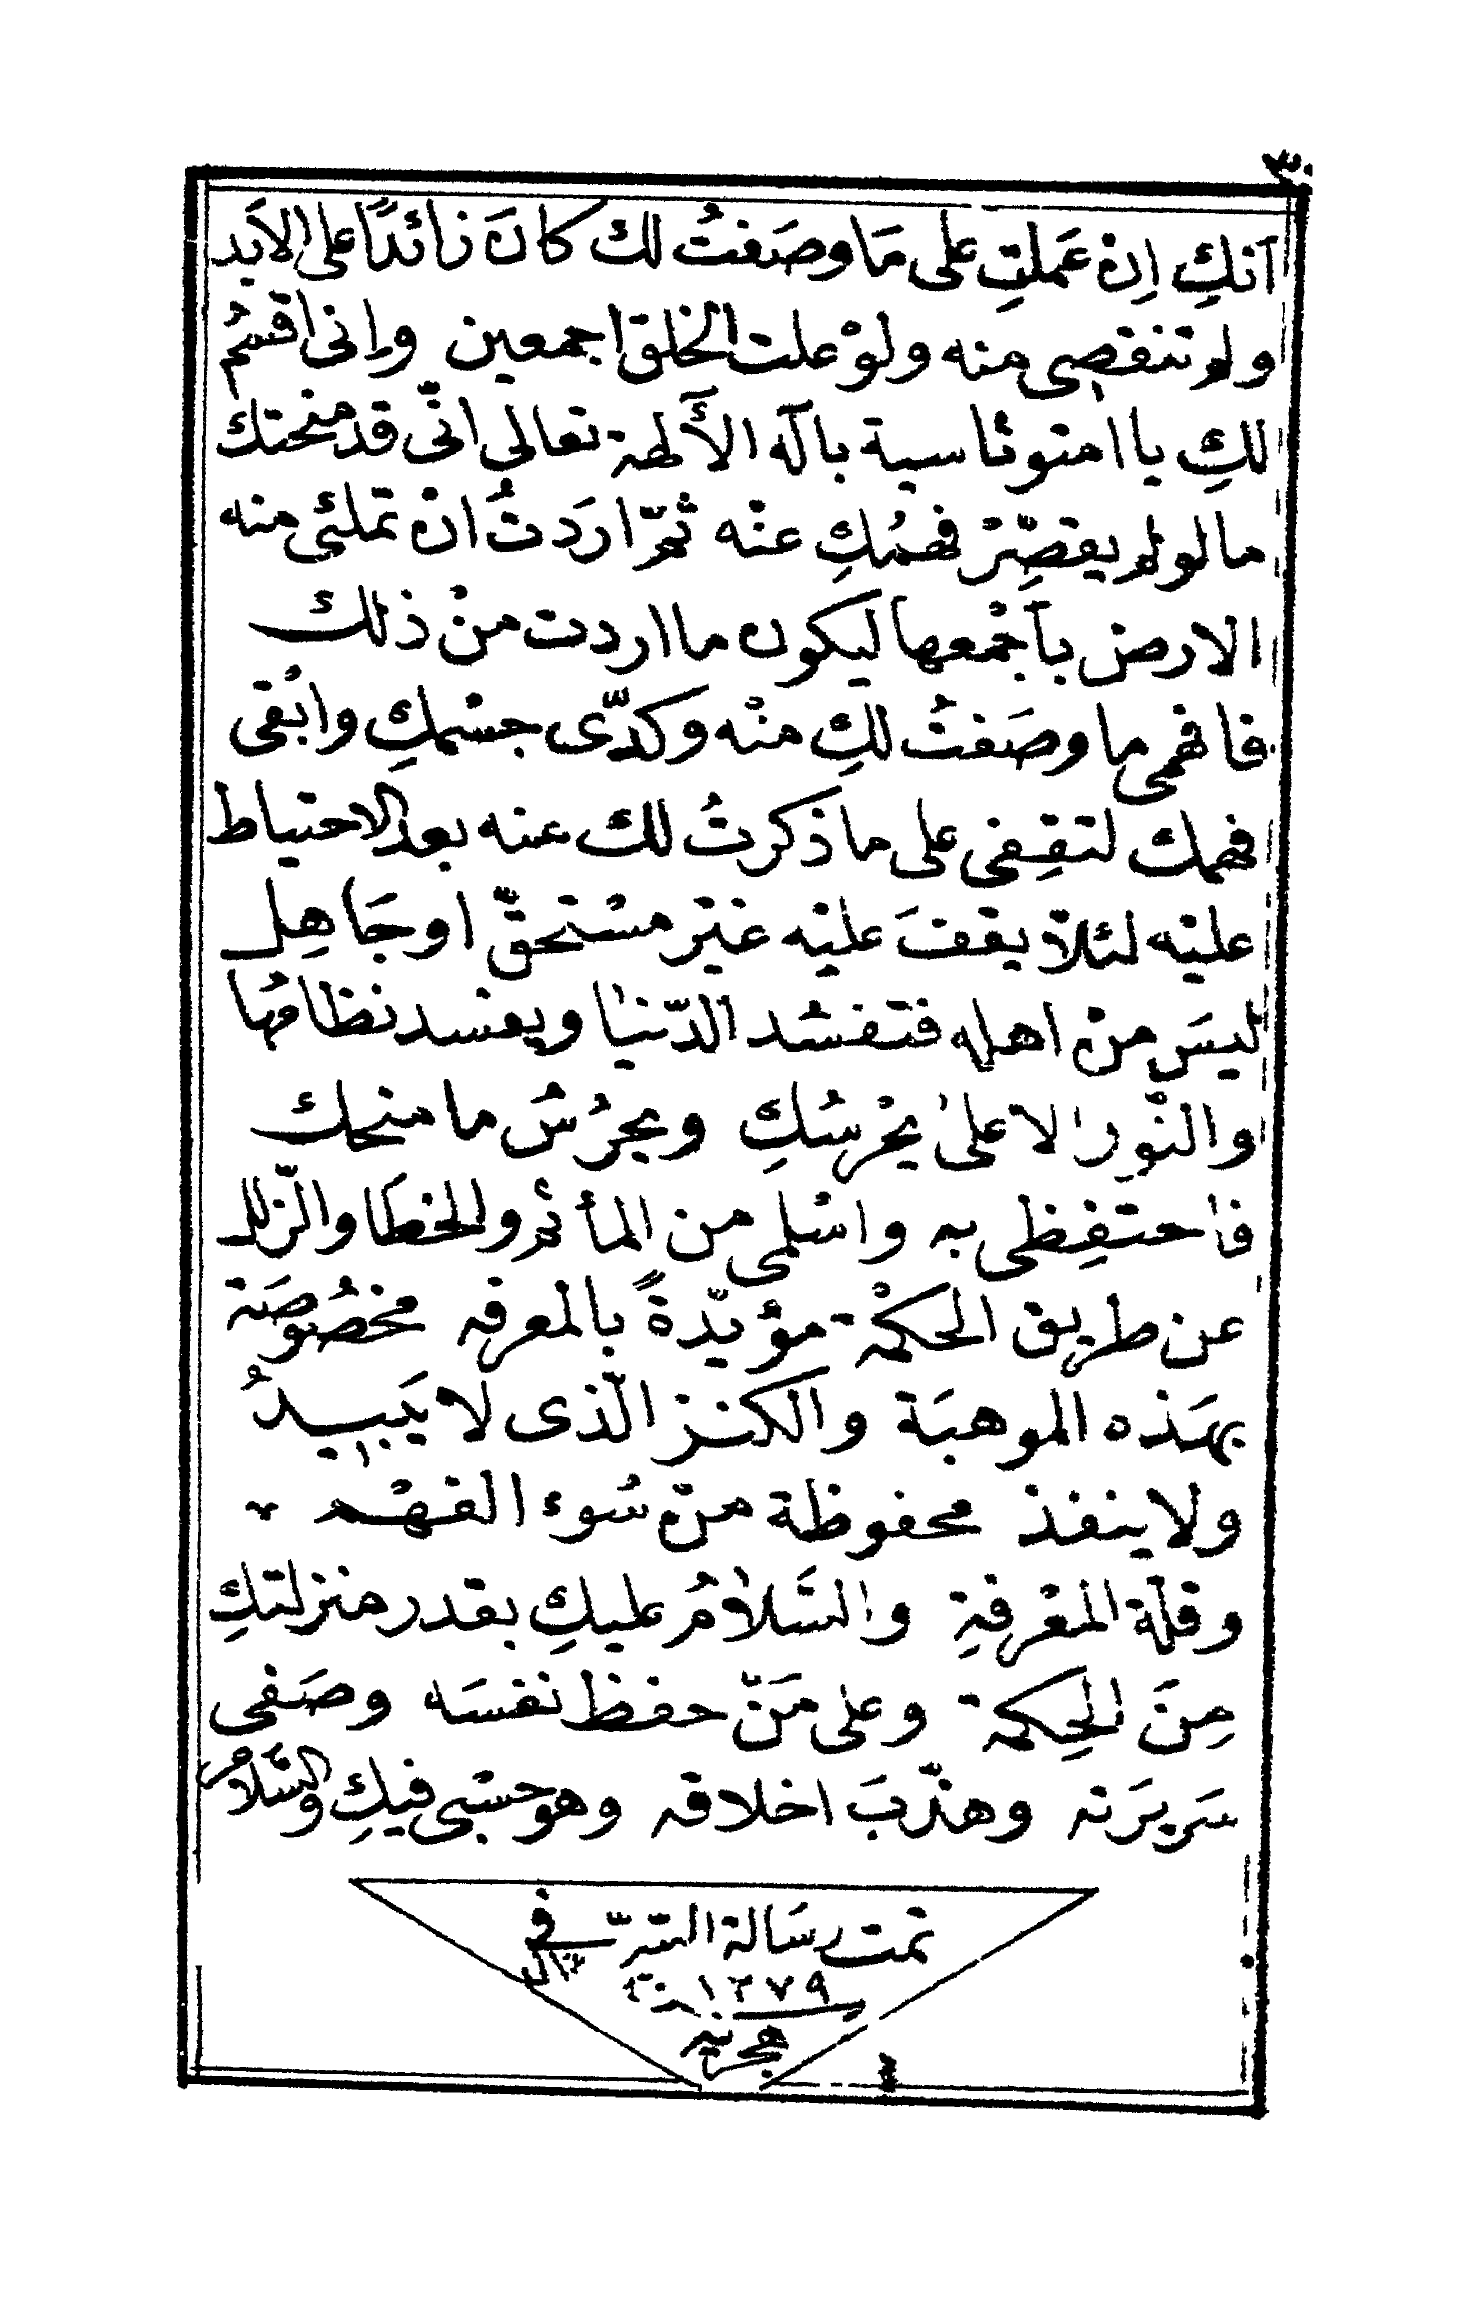 ٣٠
اَنكِ اِنْ عَملتِ على مَا وصَفتُ لك كانَ زائدًا على الاَبد
ولم تنقصى منه ولوْ علت الخلق اجمعين وإنى اقسُم
لكِ يا امتوثاسية بآله الأَلهة تعالى انّى قد منحتك
ما لو لم يقصِّرْ فهمُكِ عنْه ثمّ اردتُ انْ تملئى منه
الارض بأجْمعها ليكون ما اردت منْ ذلك
فافهمى ما وصَفتُ لكِ منْه وكدّى جسْمكِ وابُقى
فهمك لتقِفى على ما ذكرتُ لك عنه بعد الاحتياط
عليْه لئلاّ يقفَ عليْه غيْر مسْتحقّ او جَاهِل
ليسَ منْ اهله فتفسُد الدّنيا ويفسد نظامُها
والنّور الاعلىٰ يحْرسُكِ ويحرُسُ ما منحك
فاحتفِظى به واسْلمى من المأثم والخطا والزّلل
عن طريق الحكمْة مؤيّدةً بالمعرفه مخصُوصَة
بهَذه الموهبَة والكنز الّذى لا يَبيدُ
ولا ينفذ محفوظة منْ سُوء الفهْم
وقلّة المعْرفةِ والسَّلامُ عليكِ بقدر منزلتكِ
مِنَ الحِكمة وعلى مَنْ حفظ نفسَه وصَفى
سَريرَته وهذّبَ اخلاقه وهو حسْبى فيكِ والسَّلامُ
تمت رسَالة السّر فى
١٢٧٩
هجريّه